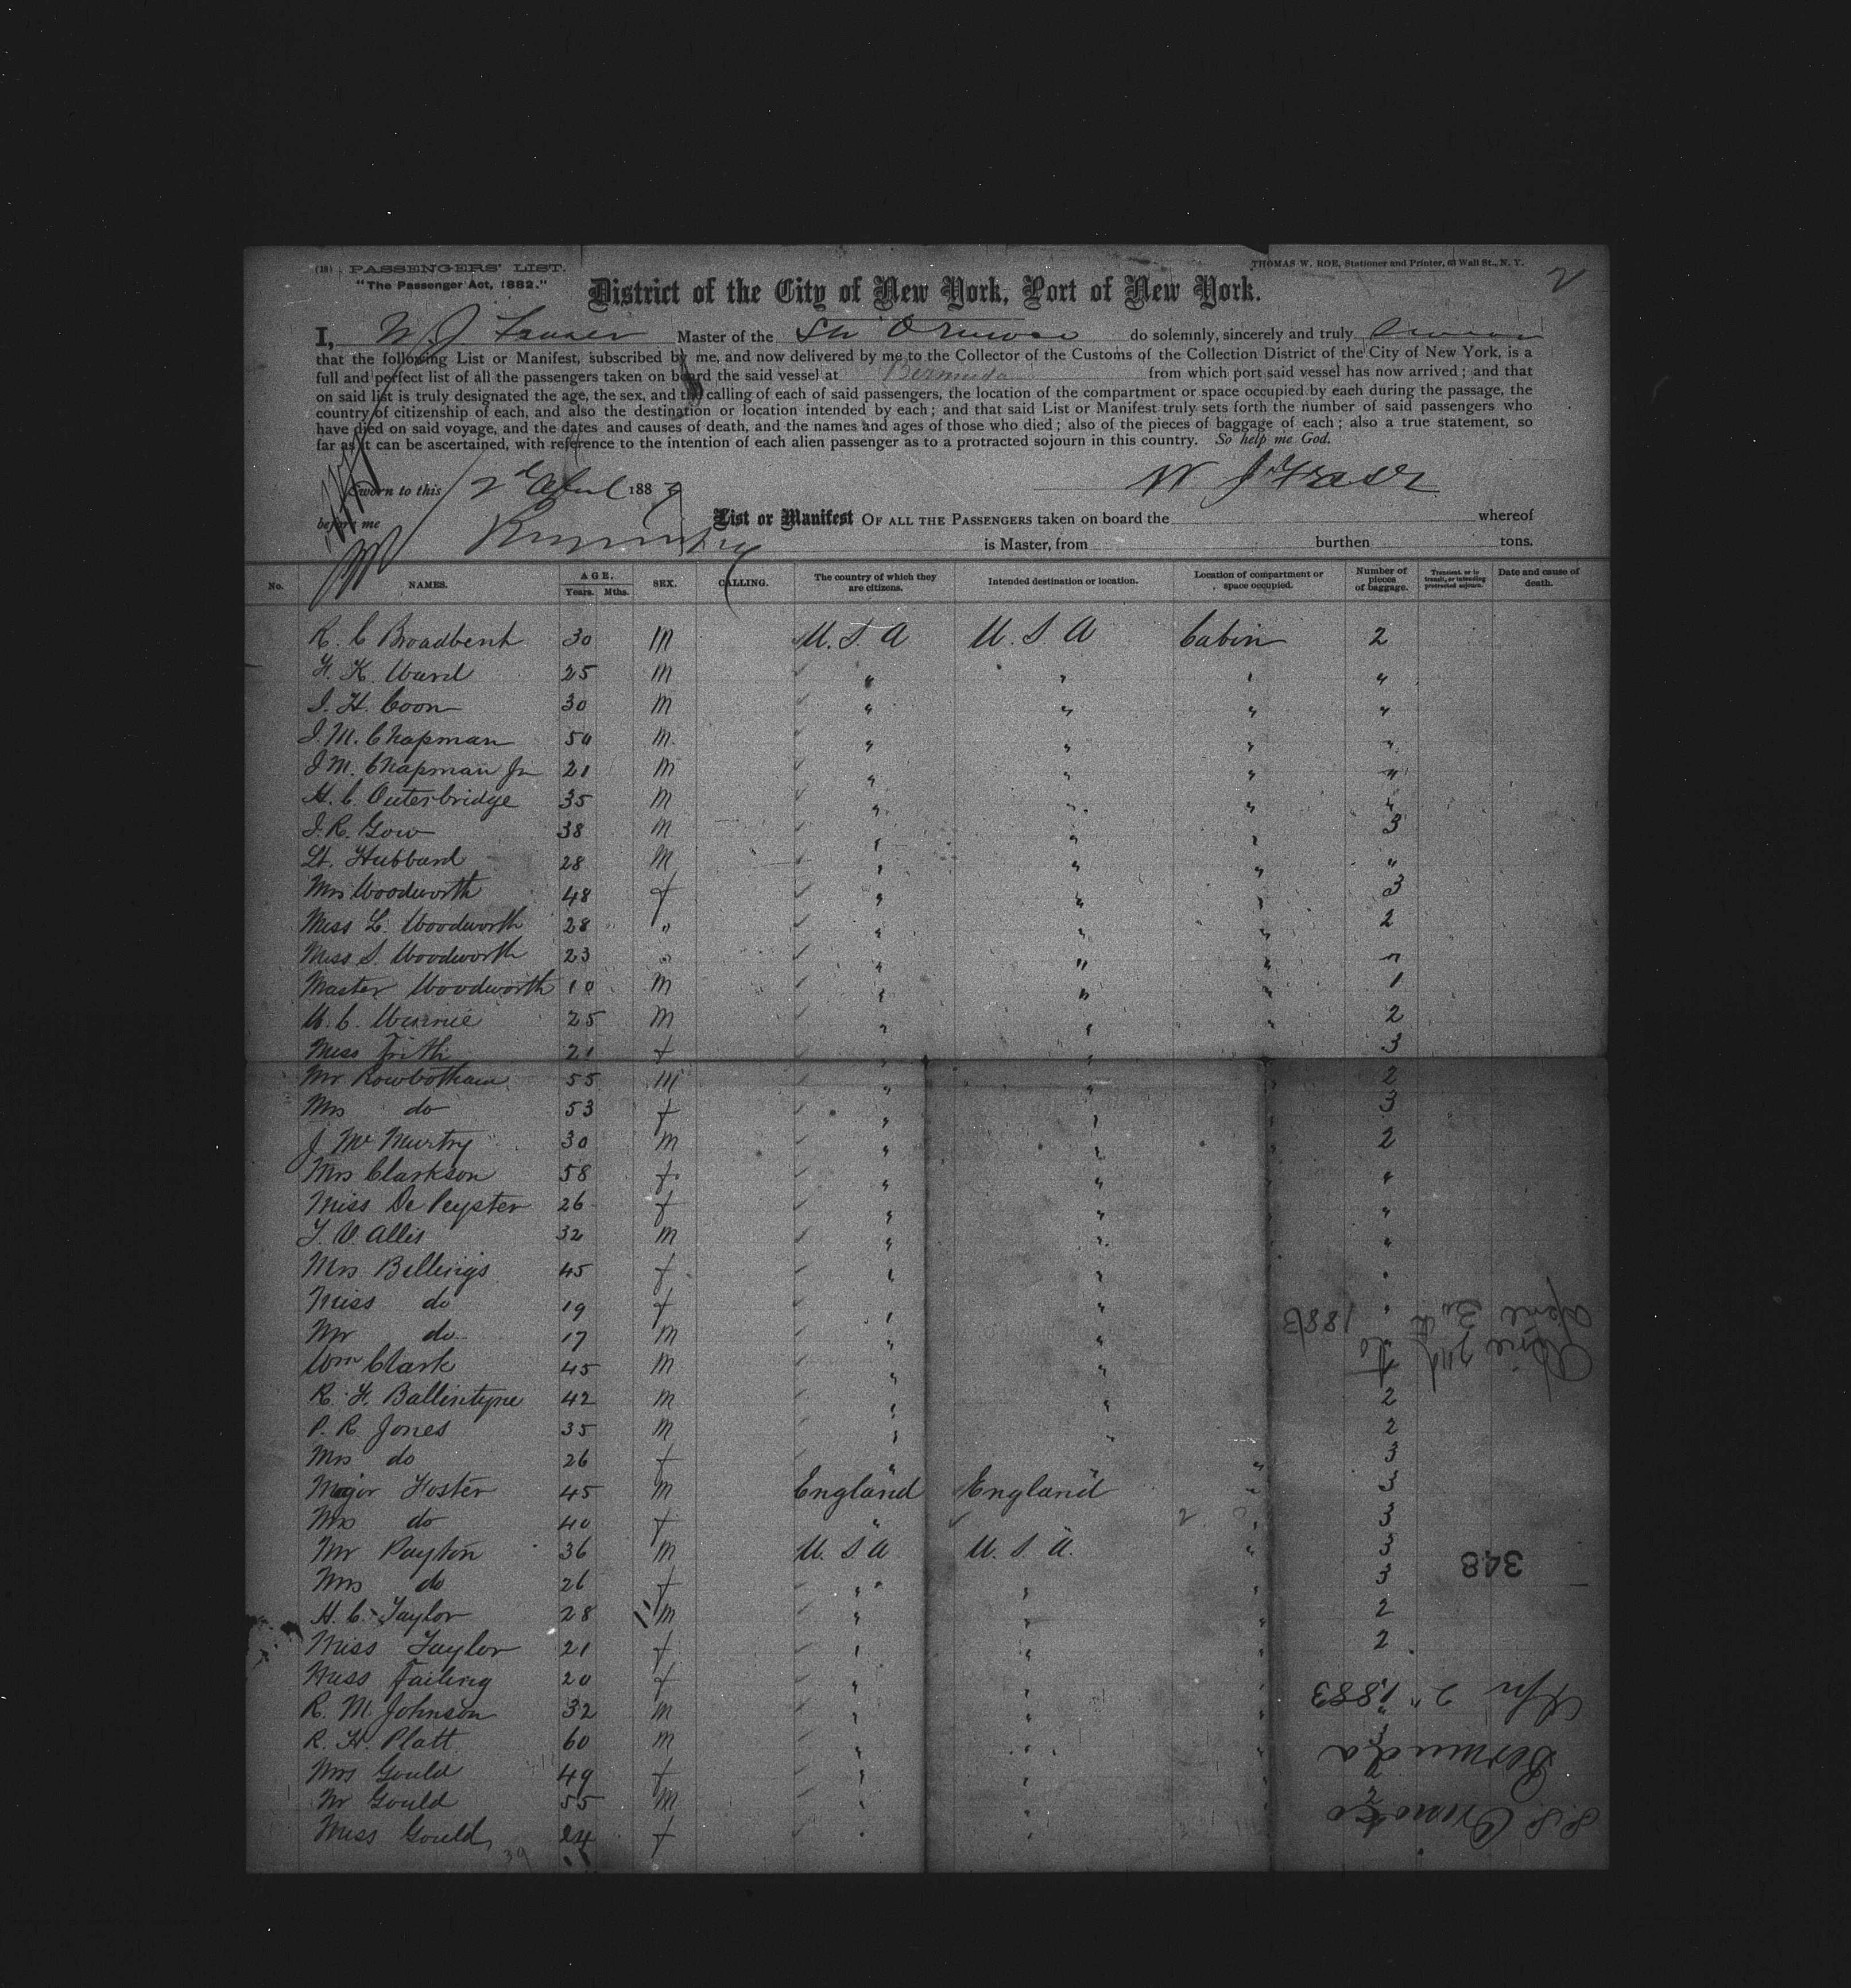 (18) PASSENGERS' LIST.
"The Passenger Act, 1882."
THOMAS W. ROE, Stationer and Printer, 63 Wall St., N. Y.
2
District of the City of New York, Port of New York.
I, W. J. Fraser Master of the Str Orinoco do solemnly, sincerely and truly swear
that the following List or Manifest, subscribed by me, and now delivered by me to the Collector of the Customs of the Collection District of the City of New York, is a
full and perfect list of all the passengers taken on board the said vessel at Bermuda from which port said vessel has now arrived; and that
on said list is truly designated the age, the sex, and the calling of each of said passengers, the location of the compartment or space occupied by each during the passage, the
country of citizenship of each, and also the destination or location intended by each; and that said List or Manifest truly sets forth the number of said passengers who
have died on said voyage, and the dates and causes of death, and the names and ages of those who died; also of the pieces of baggage of each; also a true statement, so
far as it can be ascertained, with reference to the intention of each alien passenger as to a protracted sojourn in this country. So help me God.
Sworn to this 2d April 188
W J Fraser
before me
List or Manifest OF ALL THE PASSENGERS taken on board the whereof
is Master, from burthen tons.
No. NAMES. AGE. Years. Mths. SEX. CALLING. The country of which they are citizens. Intended destination or location. Location of compartment or space occupied. Number of pieces of baggage. Transient, or in transit, or intending protracted sojourn. Date and cause of death.
R. C Broadbent 30 M U. S. A U. S A Cabin 2
F. K. Ward 25 M " " " "
I. H. Coon 30 M " " " "
J. M. Chapman 50 M. " " " "
J M. Chapman Jn 21 M " " " "
H. C. Outerbridge 35 M " " " "
J. R. Gow 38 M " " " 3
Lt. Hubbard 28 M " " " "
Mrs Woodworth 48 f " " " 3
Miss L. Woodworth 28 " " " " 2
Miss S. Woodworth 23 " " " " "
Master Woodworth 10 M " " " 1
W. C. 25 M " " " 2
Miss Frith 21 f " " 3
Mr Rowbotham 55 M " " " 2
Mrs do 53 f " " " 3
J McMurtry 30 M " " " 2
Mrs Clarkson 58 f " " " "
Miss De Peyster 26 f " " " "
T. V. Allis 32 M " " "
Mrs Billings 45 f " " "
Miss do 19 f " " "
Mr do 17 M " "
Wm Clark 45 M " "
R. F. Ballintyne 42 M " " 2
P. R. Jones 35 M " " 2
Mrs do 26 f " " " 3
Major Foster 45 M England England " 3
Mrs do 40 f " " " 3
Mr Payton 36 M U. S A U. S. A. " 3
Mrs do 26 f " " " 3
H. C. Taylor 28 M " " " 2
Miss Taylor 21 f " " " 2
Miss Failing 20 f " " "
R. M. Johnson 32 M " " " "
R. H. Platt 60 M " " " 3
Mrs Gould 49 f " " 2
Mr Gould 55 M " " 2
Miss Gould 24 f " "
39
April 3
1883
348
S. S. Orinoco
Bermuda
Apr 2" 1883